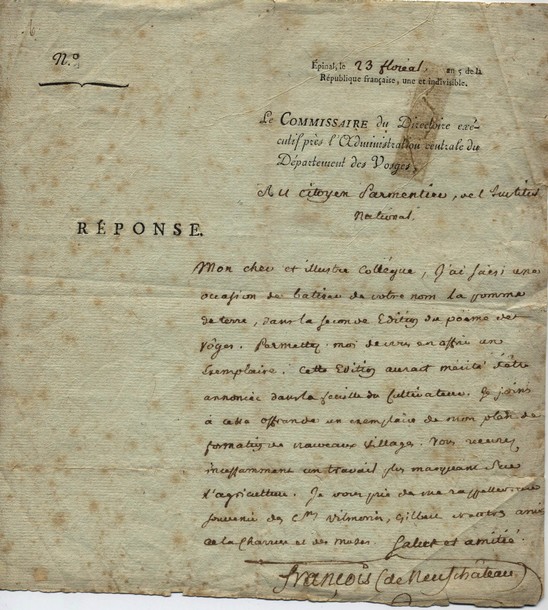 N.º
Épinal, le 23 floréal, an 5 de la
République française, une et indivisible.
Le COMMISSAIRE du Directoire exé-
cutif près l'Administration centrale du
Département des Vosges,
Au citoyen Parmentier, de l'Institut
National.
RÉPONSE.
Mon cher et illustre Collégue, j'ai saisi une
occasion de batiser de votre nom la pomme
de terre, dans la seconde Edition du poëme des
Vôges. Permettez moi de vous en offrir un
Exemplaire. Cette Edition aurait mérité d'être
annoncée dans la feuille du Cultivateur. Je joins
à cette offrande un exemplaire de mon plan de
formation de nouveaux villages. Vous recevrez
incessamment un travail plus marquant sur
l'agriculture. Je vous prie de me rappeller au
souvenir des C.ens Vilmorin, Gilbert et autres amis
de la Charrue et des Muses. Salut et amitié.
François (de Neufchâteau)